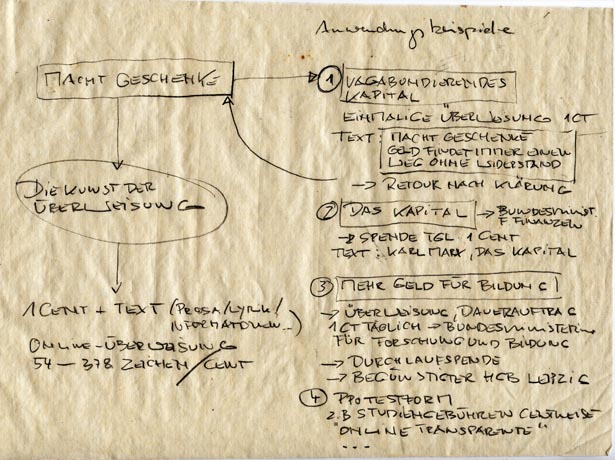 Anwendungsbeispiele
MACHT GESCHENKE
DIE KUNST DER
ÜBERWEISUNG
1 CENT + TEXT (PROSA/LYRIK/
INFORMATIONEN...)
ONLINE-ÜBERWEISUNG
54 — 378 ZEICHEN/CENT
1 VAGABUNDIERENDES
KAPITAL
EINMALIGE ÜBERWEISUNG 1CT
TEXT: MACHT GESCHENKE
GELD FINDET IMMER EINEN
WEG OHNE WIDERSTAND
→ RETOUR NACH KLÄRUNG
2 DAS KAPITAL → BUNDESMINIST.
F FINANZEN
→ SPENDE TGL 1 CENT
TEXT: KARL MARX, DAS KAPITAL
3 MEHR GELD FÜR BILDUNG
→ ÜBERWEISUNG, DAUERAUFTRAG
1CT TÄGLICH → BUNDESMINISTERIUM
FÜR FORSCHUNG UND BILDUNG
→ DURCHLAUFSPENDE
→ BEGÜNSTIGTER HGB LEIPZIG
4 PROTESTFORM
Z.B STUDIENGEBÜHREN CENTWEISE
"ONLINE TRANSPARENTE"
...